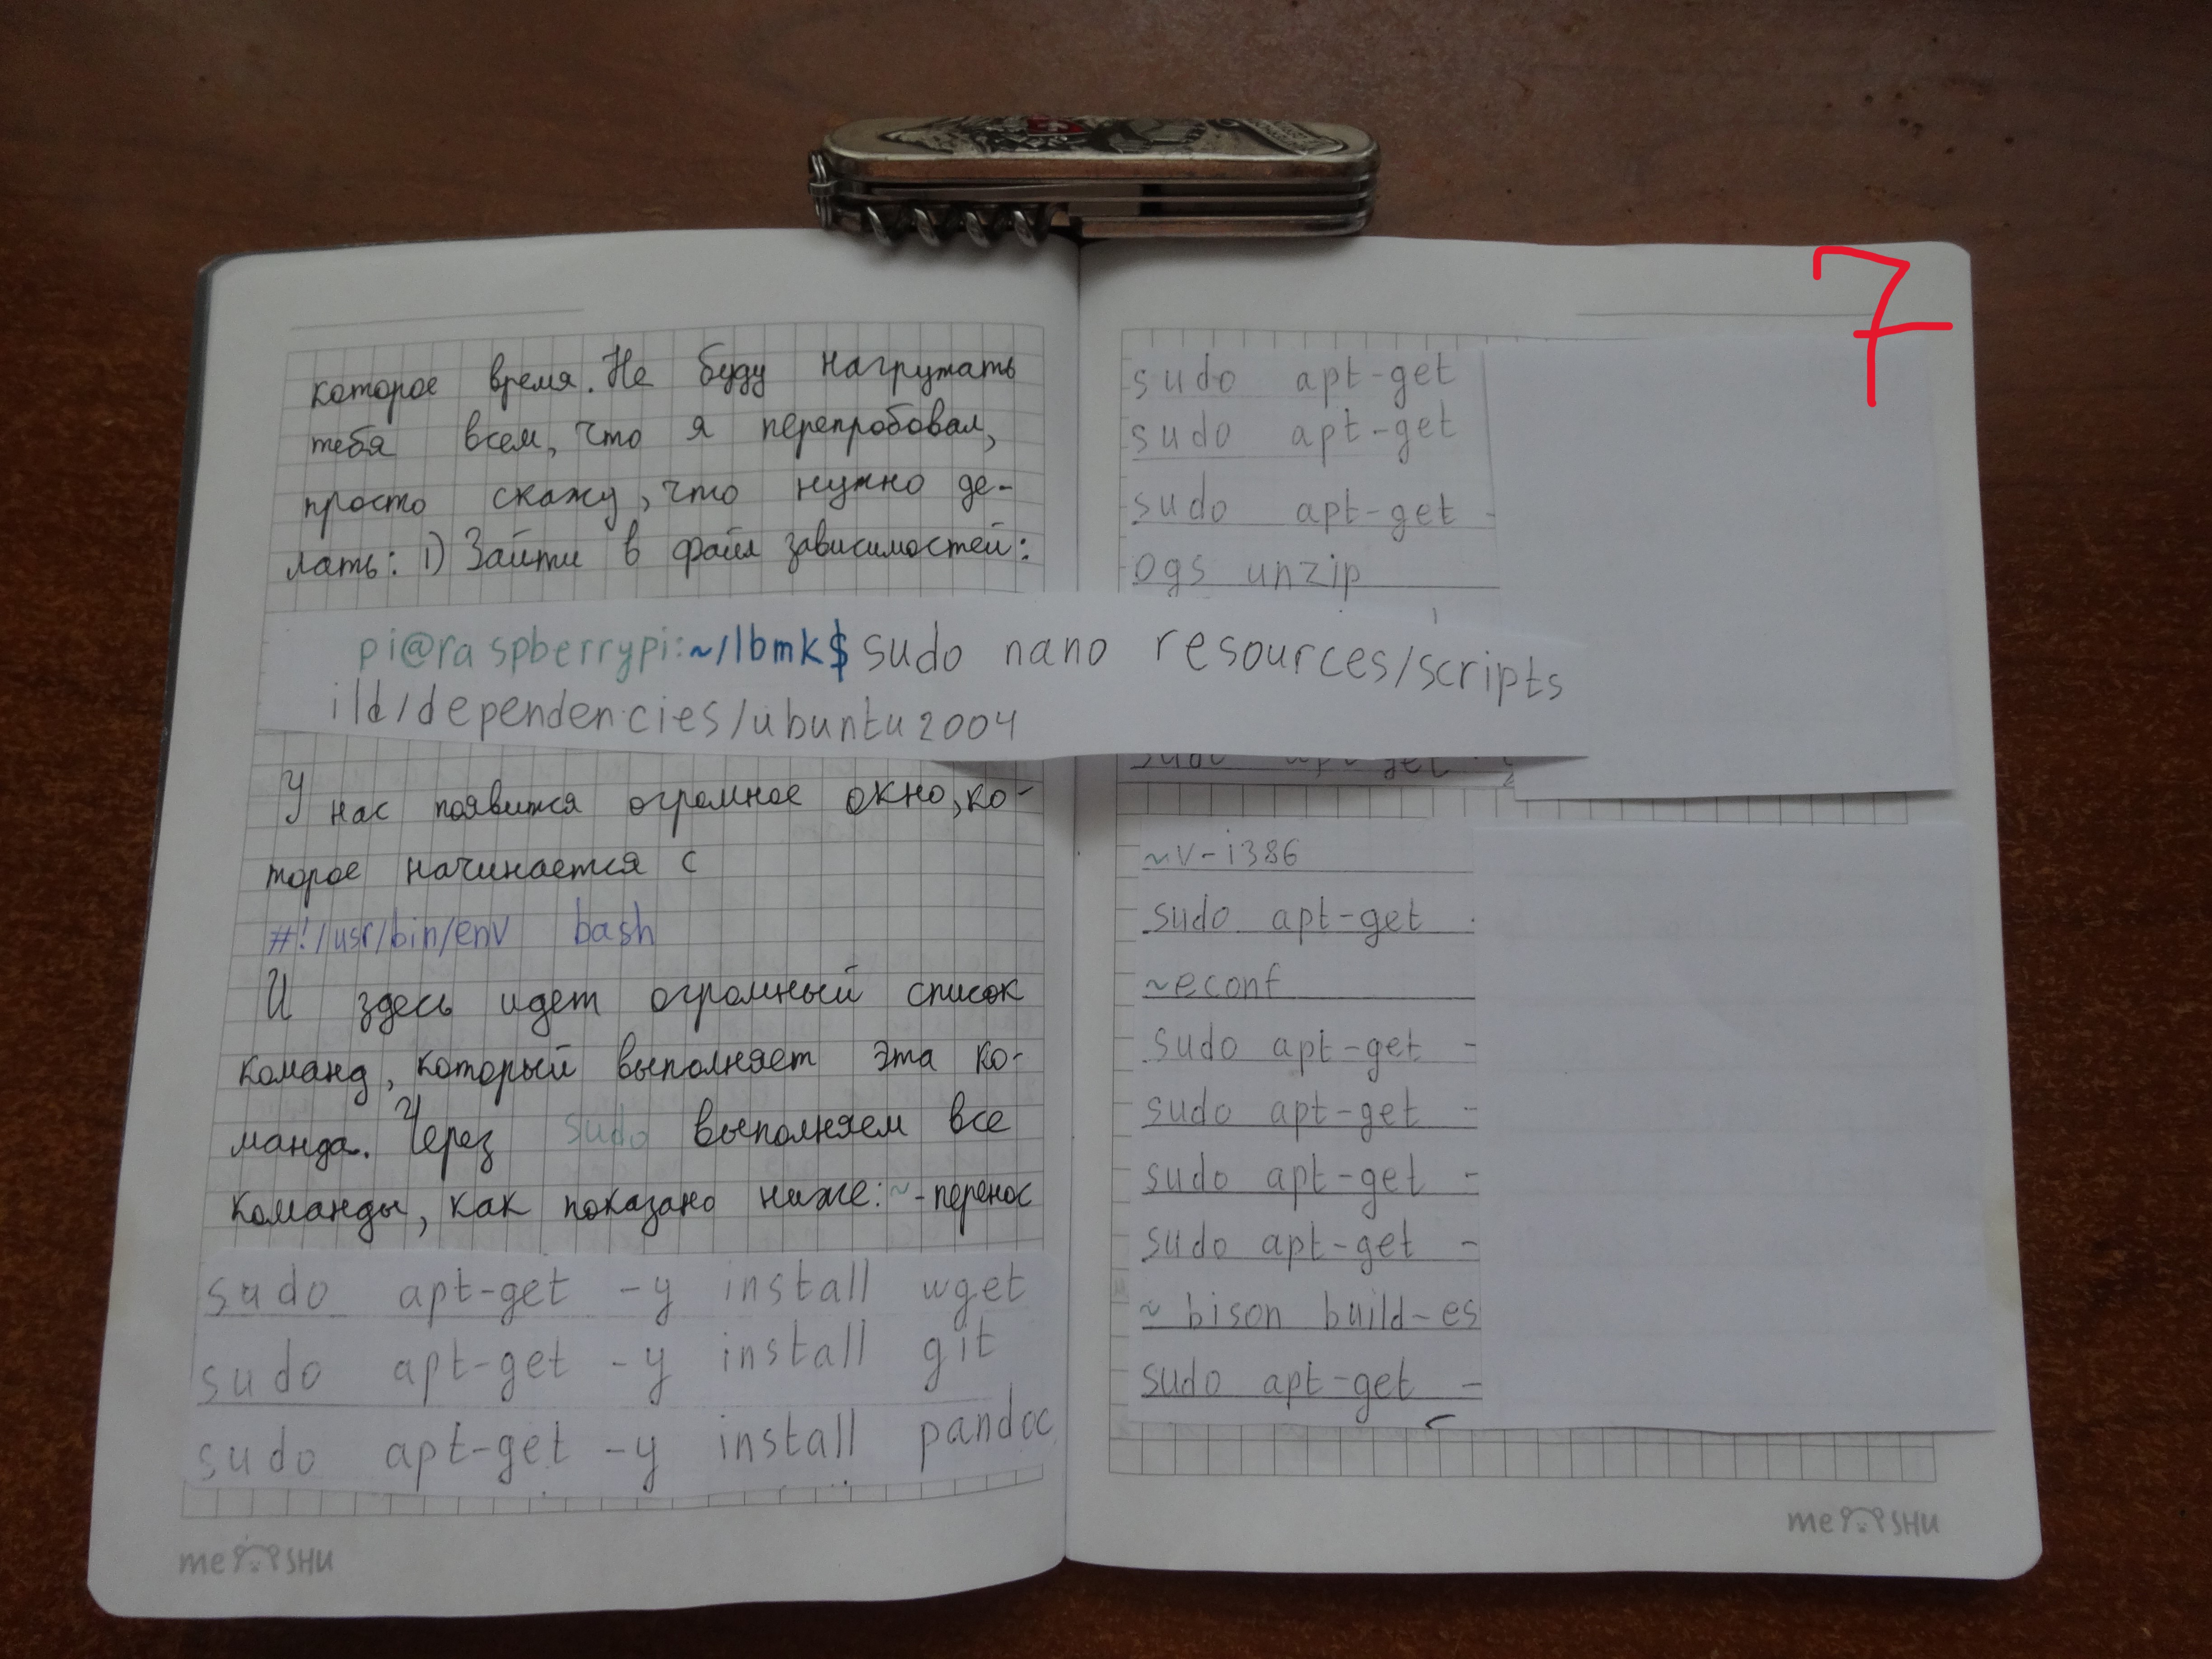 которое время. Не буду нагружать
тебя всем, что я перепробовал,
просто скажу, что нужно де-
лать: 1) Зайти в файл зависимостей:
pi@raspberrypi:~/lbmk$ sudo nano resources/scripts
ild/dependencies/ubuntu2004
У нас появится огромное окно, ко-
торое начинается с
#!/usr/bin/env bash
И здесь идет огромный список
команд, который выполняет эта ко-
манда. Через sudo выполняем все
команды, как показано ниже: ~ - перенос
sudo apt-get -y install wget
sudo apt-get -y install git
sudo apt-get -y install pandoc
me SHU
7
sudo apt-get
sudo apt-get
sudo apt-get -
ogs unzip
sudo apt-get
~v-i386
sudo apt-get
~econf
sudo apt-get -
sudo apt-get -
sudo apt-get -
sudo apt-get -
~ bison build-es
sudo apt-get -
me SHU